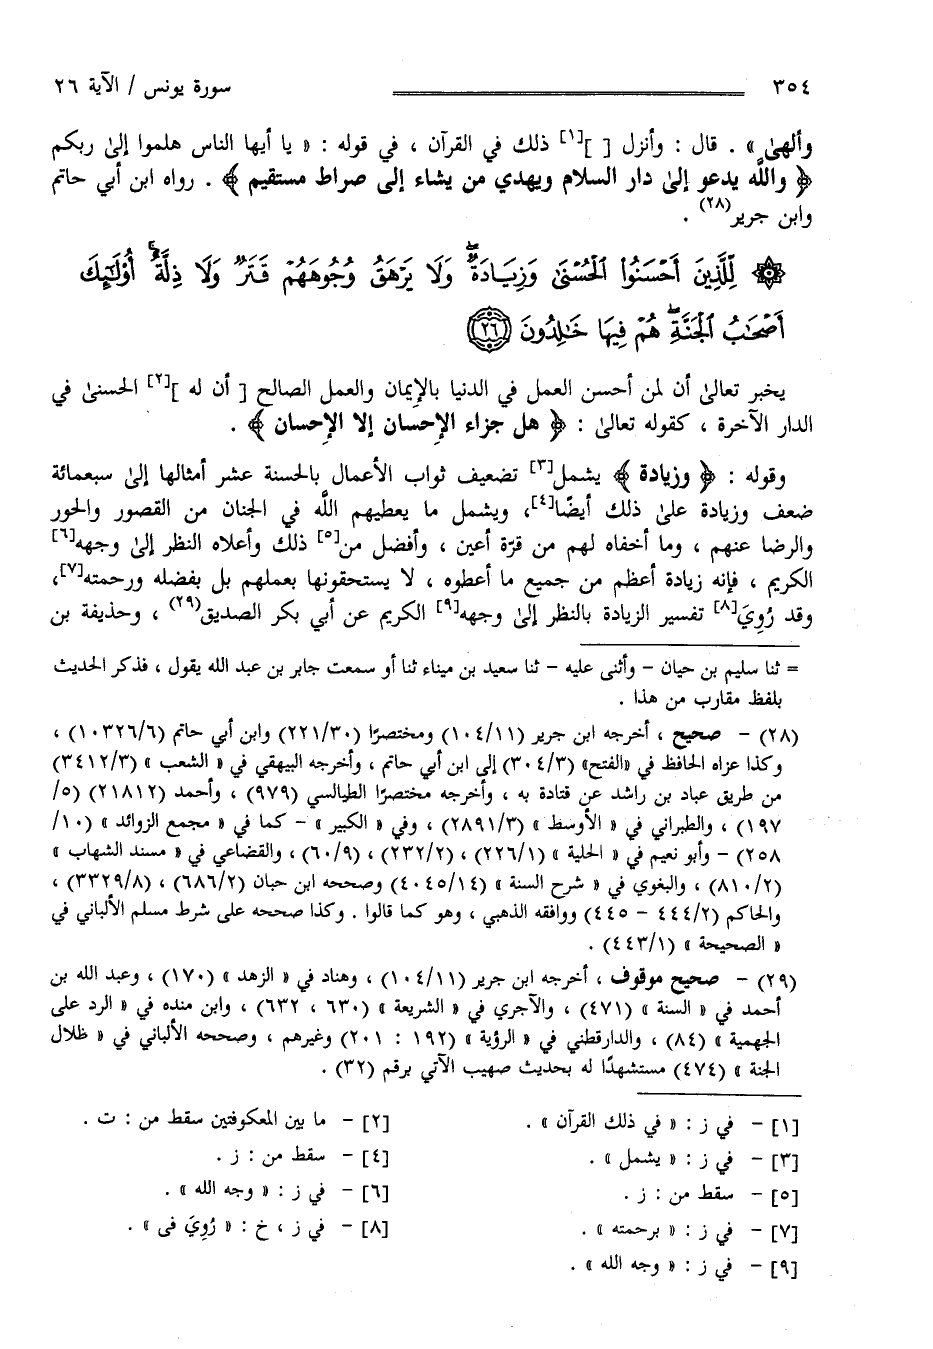 ٣٥٤ سورة يونس / الآية ٢٦
وألهىٰ » . قال : وأنزل [ ][١] ذلك في القرآن ، في قوله : « يا أيها الناس هلموا إلىٰ ربكم
﴿ واللَّه يدعو إلىٰ دار السلام ويهدي من يشاء إلى صراط مستقيم ﴾ . رواه ابن أبي حاتم
وابن جرير(٢٨) .
۞ لِّلَّذِينَ أَحْسَنُوا۟ ٱلْحُسْنَىٰ وَزِيَادَةٌ ۖ وَلَا يَرْهَقُ وُجُوهَهُمْ قَتَرٌ وَلَا ذِلَّةٌ ۚ أُو۟لَٰٓئِكَ
أَصْحَٰبُ ٱلْجَنَّةِ ۖ هُمْ فِيهَا خَٰلِدُونَ ۝٢٦
يخبر تعالىٰ أن لمن أحسن العمل في الدنيا بالإيمان والعمل الصالح [ أن له ][٢] الحسنىٰ في
الدار الآخرة ، كقوله تعالىٰ : ﴿ هل جزاء الإحسان إلا الإحسان ﴾ .
وقوله : ﴿ وزيادة ﴾ يشمل[٣] تضعيف ثواب الأعمال بالحسنة عشر أمثالها إلىٰ سبعمائة
ضعف وزيادة علىٰ ذلك أيضًا[٤]، ويشمل ما يعطيهم اللَّه في الجنان من القصور والحور
والرضا عنهم ، وما أخفاه لهم من قرّة أعين ، وأفضل من[٥] ذلك وأعلاه النظر إلىٰ وجهه[٦]
الكريم ، فإنه زيادة أعظم من جميع ما أعطوه ، لا يستحقونها بعملهم بل بفضله ورحمته[٧]،
وقد رُوِيَ[٨] تفسير الزيادة بالنظر إلىٰ وجهه[٩] الكريم عن أبي بكر الصديق(٢٩) ، وحذيفة بن
= ثنا سليم بن حيان – وأثنى عليه – ثنا سعيد بن ميناء ثنا أو سمعت جابر بن عبد الله يقول ، فذكر الحديث
بلفظ مقارب من هذا .
(٢٨) – صحيح ، أخرجه ابن جرير (١٠٤/١١) ومختصرًا (٢٢١/٣٠) وابن أبي حاتم (١٠٣٢٦/٦) ،
وكذا عزاه الحافظ في «الفتح» (٣٠٤/٣) إلى ابن أبي حاتم ، وأخرجه البيهقي في « الشعب » (٣٤١٢/٣)
من طريق عباد بن راشد عن قتادة به ، وأخرجه مختصرًا الطيالسي (٩٧٩) ، وأحمد (٢١٨١٢) (٥/
١٩٧) ، والطبراني في « الأوسط » (٢٨٩١/٣) ، وفي « الكبير » – كما في « مجمع الزوائد » (١٠/
٢٥٨) – وأبو نعيم في « الحلية » (٢٢٦/١) ، (٢٣٢/٢) ، (٦٠/٩) ، والقضاعي في « مسند الشهاب »
(٨١٠/٢) ، والبغوي في « شرح السنة » (٤٠٤٥/١٤) وصححه ابن حبان (٦٨٦/٢) ، (٣٣٢٩/٨) ،
والحاكم (٤٤٤/٢ – ٤٤٥) ووافقه الذهبي ، وهو كما قالوا . وكذا صححه على شرط مسلم الألباني في
« الصحيحة » (٤٤٣/١) .
(٢٩) – صحيح موقوف ، أخرجه ابن جرير (١٠٤/١١) ، وهناد في « الزهد » (١٧٠) ، وعبد الله بن
أحمد في « السنة » (٤٧١) ، والآجري في « الشريعة » (٦٣٠ ، ٦٣٢) ، وابن منده في « الرد على
الجهمية » (٨٤) ، والدارقطني في « الرؤية » (١٩٢ : ٢٠١) وغيرهم ، وصححه الألباني في « ظلال
الجنة » (٤٧٤) مستشهدًا له بحديث صهيب الآتي برقم (٣٢) .
[١] – في ز : « في ذلك القرآن » . [٢] – ما بين المعكوفتين سقط من : ت .
[٣] – في ز : « يشمل » . [٤] – سقط من : ز .
[٥] – سقط من : ز . [٦] – في ز : « وجه الله » .
[٧] – في ز : « برحمته » . [٨] – في ز ، خ : « رُوِيَ فى » .
[٩] – في ز : « وجه الله » .